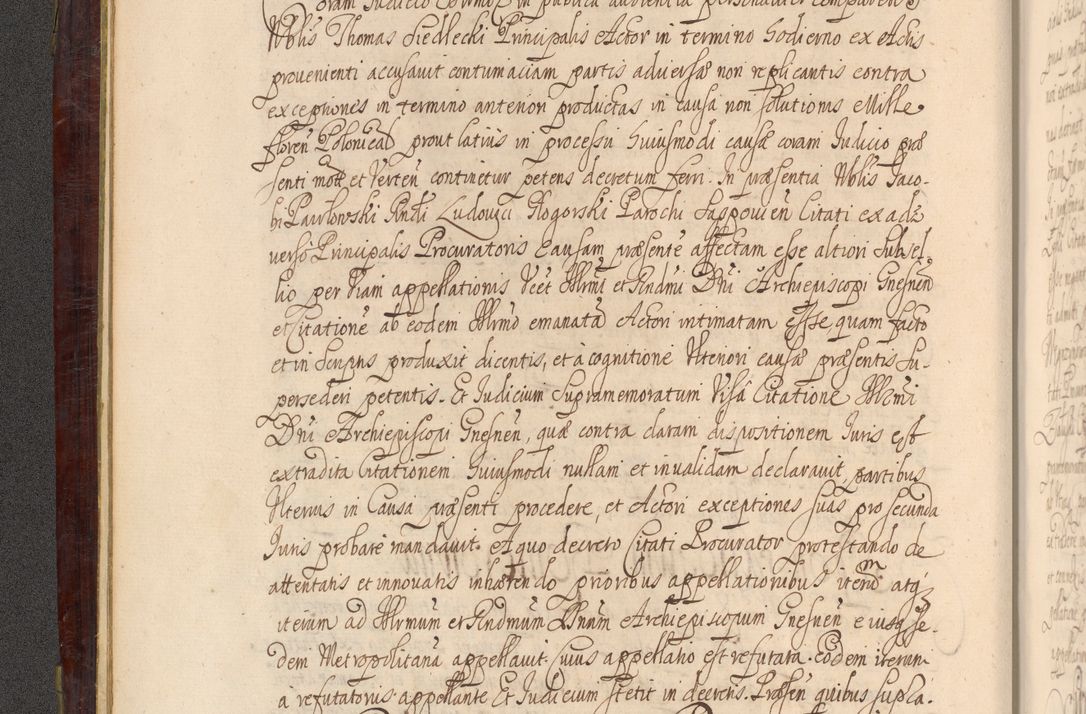 Coram Judicio Eodem in publica audientia personaliter comparens
Nblis Thomas Siedlecki Principalis Actor in termino hodierno ex Actis
prouenienti accusauit contumaciam partis aduersæ non replicantis contra
exceptiones in termino anteriori productas in causa non solutionis Mille
floren Polonical prout latius in processu huiusmodi causæ coram Iudicio præ
senti mott et Verten continetur petens decretum ferri. In præsentia Nblis Iaco-
bi Pawlowski Andi Ludouici Rogorski Parochi Saspouien Citati ex ad
verso Principalis Procuratoris Causam præsente affectam esse altiori Subsel
lio per viam appellationis Vcet Illrmi et Rndmi Dni Archiepiscopi Gnesnen
et Citatione ab eodem Illrmo emanata Actori intimatam esse, quam facto
et in scriptis produxit dicentis, et à cognitione Vlteriori causæ præsentis Su-
persederi petentis. Et Iudicium Supramemoratum Visâ Citatione Illrmi
Dni Archiepiscopi Gnesnen, quæ contra claram dispositionem Iuris est
extradita Citationem huiusmodi nullam et inualidam declarauit, partibus
Vlterius in Causa præsenti procedere, et Actori exceptiones suas pro secunda
Iuris probare mandauit. A quo decreto Citati Procurator protestando de
attentatis et innouatis inhærendo prioribus appellationibus iterum atq
iterum ad Illrmum et Rndmum Dnum Archiepiscopum Gnesnen eiusq se-
dem Metropolitana appellauit. Cuius appellatio est refutata. Eodem iterum
à refutatoris appellante Et Iudicium stetit in decretis. Præsen quibus supla.